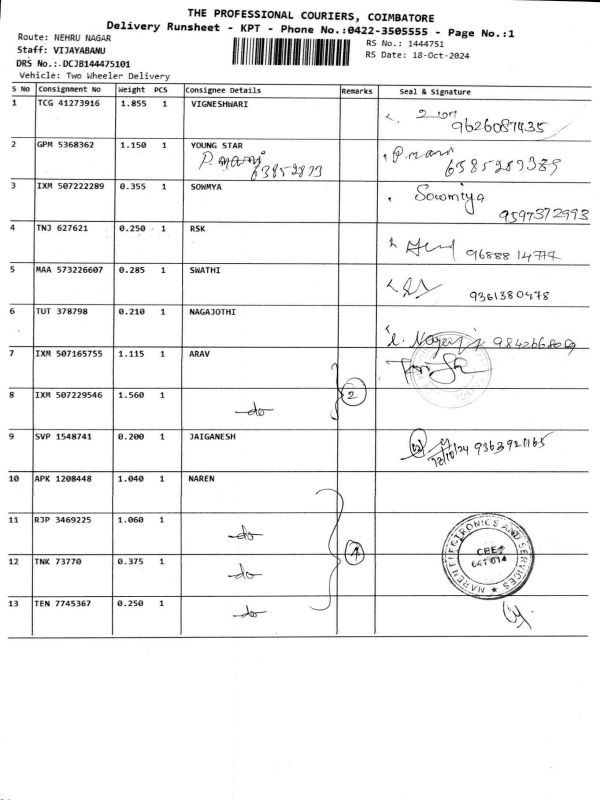 THE PROFESSIONAL COURIERS, COIMBATORE
Delivery Runsheet - KPT - Phone No.:0422-3505555 - Page No.:1
Route: NEHRU NAGAR
RS No.: 1444751
Staff: VIJAYABANU
RS Date: 18-Oct-2024
DRS No.:.DCJB144475101
Vehicle: Two Wheeler Delivery
S No Consignment No Weight PCS Consignee Details Remarks Seal & Signature
1 TCG 41273916 1.855 1 VIGNESHWARI
9626087435
2 GPM 5368362 1.150 1 YOUNG STAR
P. mani 63852873
P. mani 6385287339
3 IXM 507222289 0.355 1 SOWMYA
Sowmiya
9597372993
4 TNJ 627621 0.250 1 RSK
9688814774
5 MAA 573226607 0.285 1 SWATHI
9361380478
6 TUT 378798 0.210 1 NAGAJOTHI
7 IXM 507165755 1.115 1 ARAV
2
8 IXM 507229546 1.560 1
-do-
9 SVP 1548741 0.200 1 JAIGANESH
10 APK 1208448 1.040 1 NAREN
11 RJP 3469225 1.060 1
-do-
4
12 TNK 73770 0.375 1
-do-
NAREN ELECTRONICS AND SERVICES
CBE
641 014
13 TEN 7745367 0.250 1
-do-